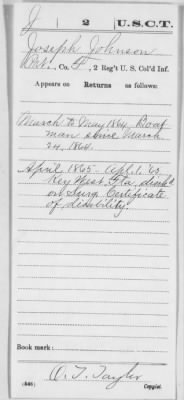 J 2 U.S.C.T.
Joseph Johnson
Pvt., Co. F, 2 Reg't U. S. Col'd Inf.
Appears on Returns as follows:
March to May 1864, Boat
man since March
24, 1864.
April 1865 - Apl. 1, 65
Key West Fla, disch'd
on Surg. Certificate
of disability.
Book mark:
O. T. Taylor
(546) Copyist.